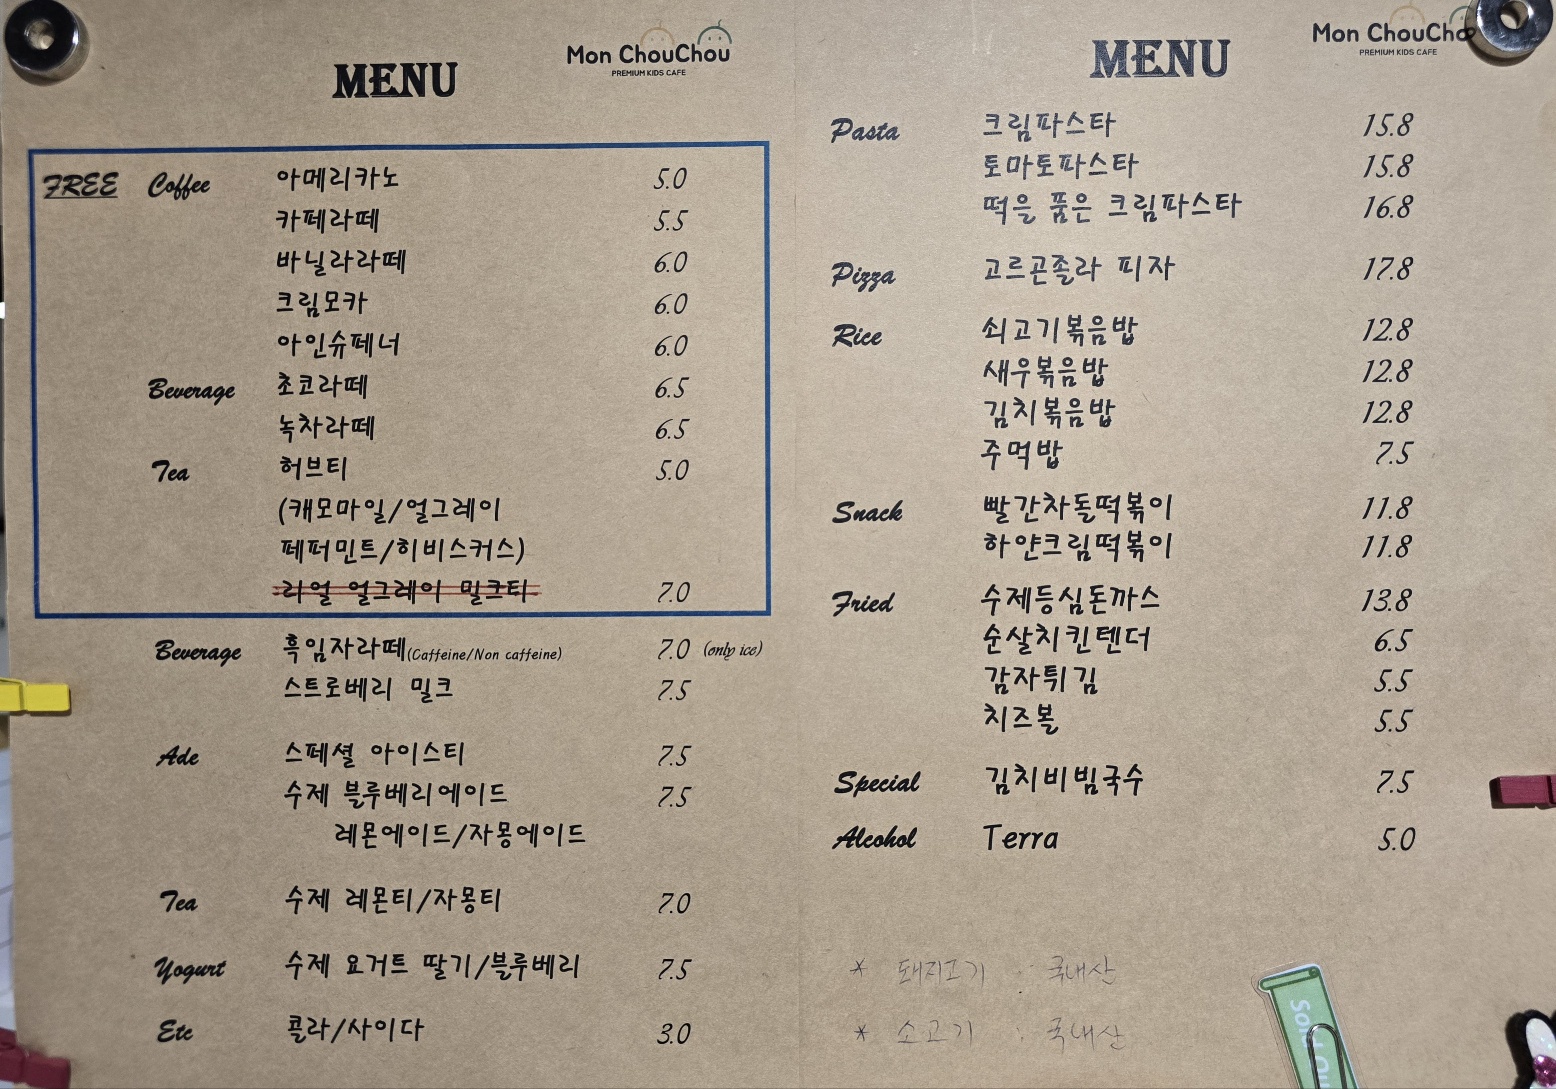 Mon ChouChou
PREMIUM KIDS CAFE
MENU
FREE Coffee 아메리카노 5.0
카페라떼 5.5
바닐라라떼 6.0
크림모카 6.0
아인슈페너 6.0
Beverage 초코라떼 6.5
녹차라떼 6.5
Tea 허브티 5.0
(캐모마일/얼그레이
페퍼민트/히비스커스)
리얼 얼그레이 밀크티 7.0
Beverage 흑임자라떼(Caffeine/Non caffeine) 7.0 (only ice)
스트로베리 밀크 7.5
Ade 스페셜 아이스티 7.5
수제 블루베리에이드 7.5
레몬에이드/자몽에이드
Tea 수제 레몬티/자몽티 7.0
Yogurt 수제 요거트 딸기/블루베리 7.5
Etc 콜라/사이다 3.0
Mon ChouCho
PREMIUM KIDS CAFE
MENU
Pasta 크림파스타 15.8
토마토파스타 15.8
떡을 품은 크림파스타 16.8
Pizza 고르곤졸라 피자 17.8
Rice 쇠고기볶음밥 12.8
새우볶음밥 12.8
김치볶음밥 12.8
주먹밥 7.5
Snack 빨간차돌떡볶이 11.8
하얀크림떡볶이 11.8
Fried 수제등심돈까스 13.8
순살치킨텐더 6.5
감자튀김 5.5
치즈볼 5.5
Special 김치비빔국수 7.5
Alcohol Terra 5.0
* 돼지고기 : 국내산
* 소고기 : 국내산